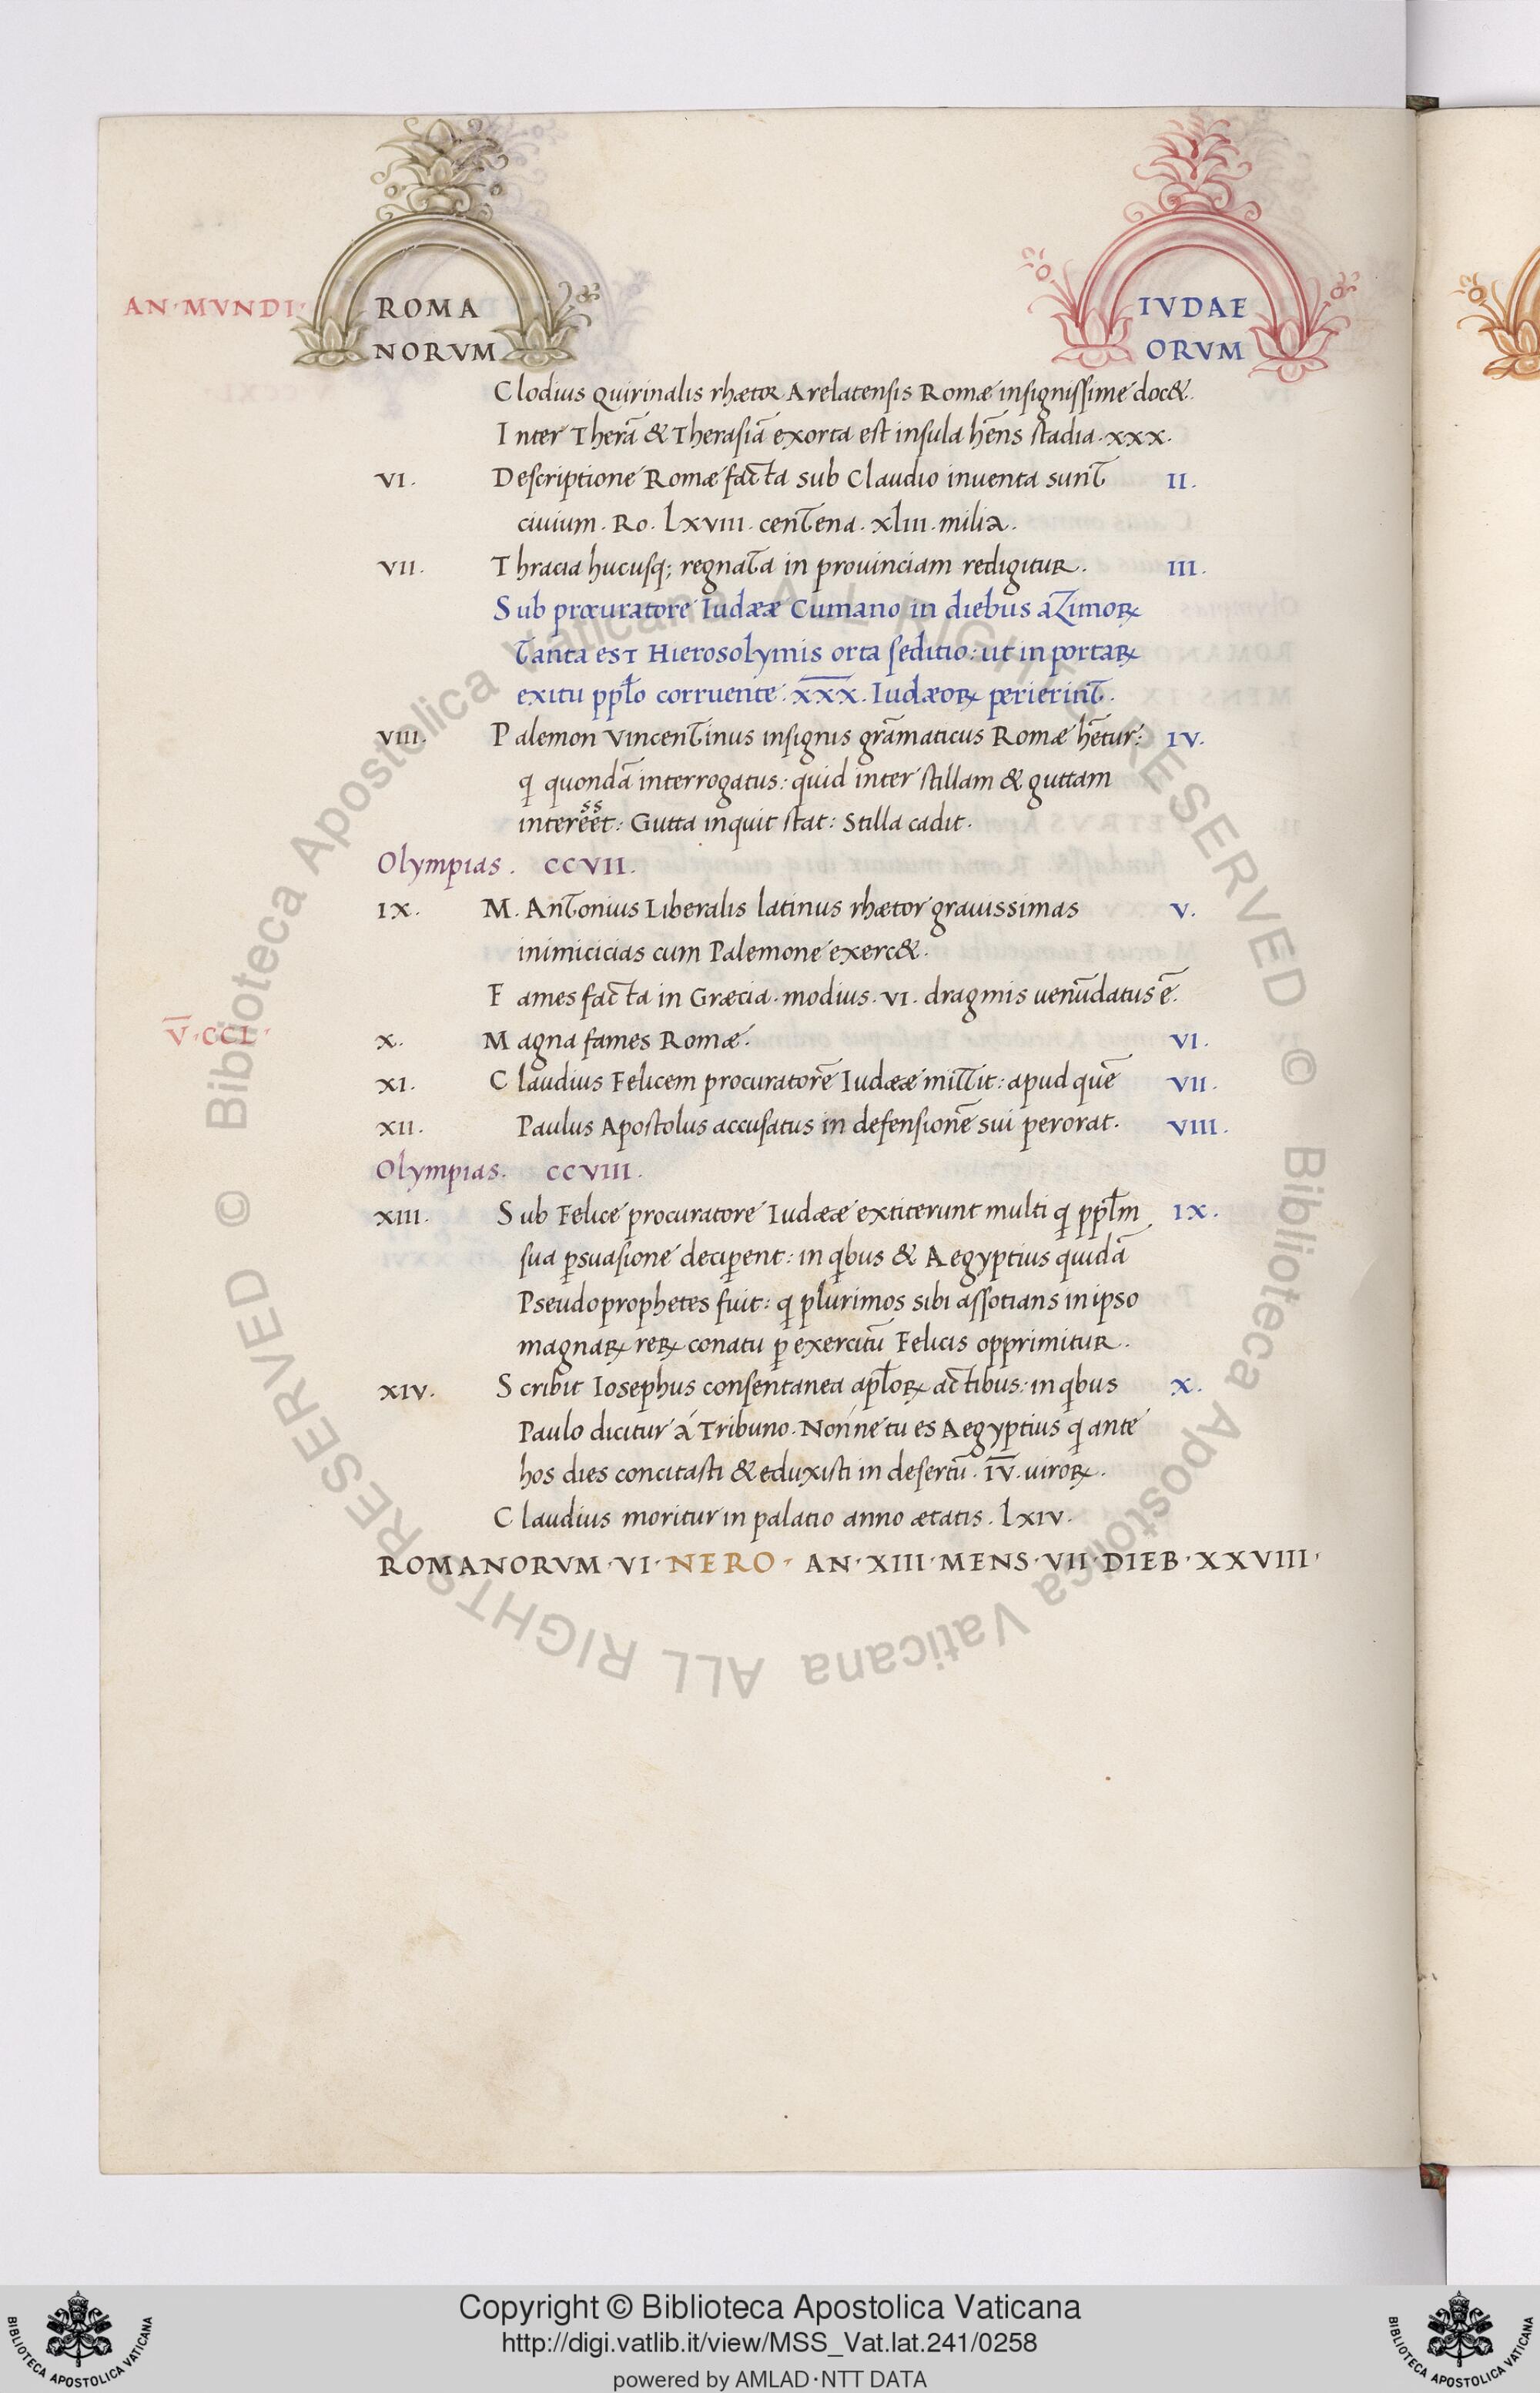 AN·MVNDI· ROMA IVDAE
NORVM ORVM
Clodius Quirinalis rhætor Arelatensis Romæ insignissime doc&.
Inter Therā & Therasiā exorta est insula hēns stadia·xxx.
VI. Descriptione Romæ facta sub Claudio inuenta sunt II.
ciuium. Ro. lxviii. centena. xliii. milia.
VII. Thracia hucusq; regnata in prouinciam redigitur. III.
Sub procuratore Iudææ Cumano in diebus aZimoꝝ
tanta est Hierosolymis orta seditio: ut in portaꝝ
exitu ppło corruente: x̅x̅x̅. Iudæoꝝ perierint.
VIII. Palemon Vincentinus insignis grāmaticus Romæ hētur: IV.
q quondā interrogatus: quid inter stillam & guttam
intereēt: Gutta inquit stat: Stilla cadit.
ss
Olympias. CCVII.
IX. M. Antonius Liberalis latinus rhætor grauissimas V.
inimicicias cum Palemone exerc&.
Fames facta in Græcia·modius·VI. dragmis uenūdatus ē.
V̅·CCL· X. Magna fames Romæ. VI.
XI. Claudius Felicem procuratorē Iudææ mittit: apud quē VII.
XII. Paulus Apostolus accusatus in defensionē sui perorat. VIII.
Olympias. CCVIII.
XIII. Sub Felice procuratore Iudææ extiterunt multi q ppłm IX.
sua ꝑsuasione deciꝑent: in qbus & Aegyptius quidā
Pseudoprophetes fuit: q plurimos sibi assotians in ipso
magnaꝝ reꝝ conatu ꝑ exercitū Felicis opprimitur.
XIV. Scribit Iosephus consentanea apłoꝝ actibus: in qbus X.
Paulo dicitur á Tribuno. Nonne tu es Aegyptius q ante
hos dies concitasti & eduxisti in desertū. I̅V̅. uiroꝝ.
Claudius moritur in palatio anno ætatis. lxiv.
ROMANORVM·VI·NERO· AN·XIII·MENS·VII·DIEB·XXVIII·
© Biblioteca Apostolica Vaticana ALL RIGHTS RESERVED © Biblioteca Apostolica Vaticana ALL RIGHTS RESERVED
Copyright © Biblioteca Apostolica Vaticana
http://digi.vatlib.it/view/MSS_Vat.lat.241/0258
powered by AMLAD·NTT DATA
BIBLIOTECA APOSTOLICA VATICANA
BIBLIOTECA APOSTOLICA VATICANA